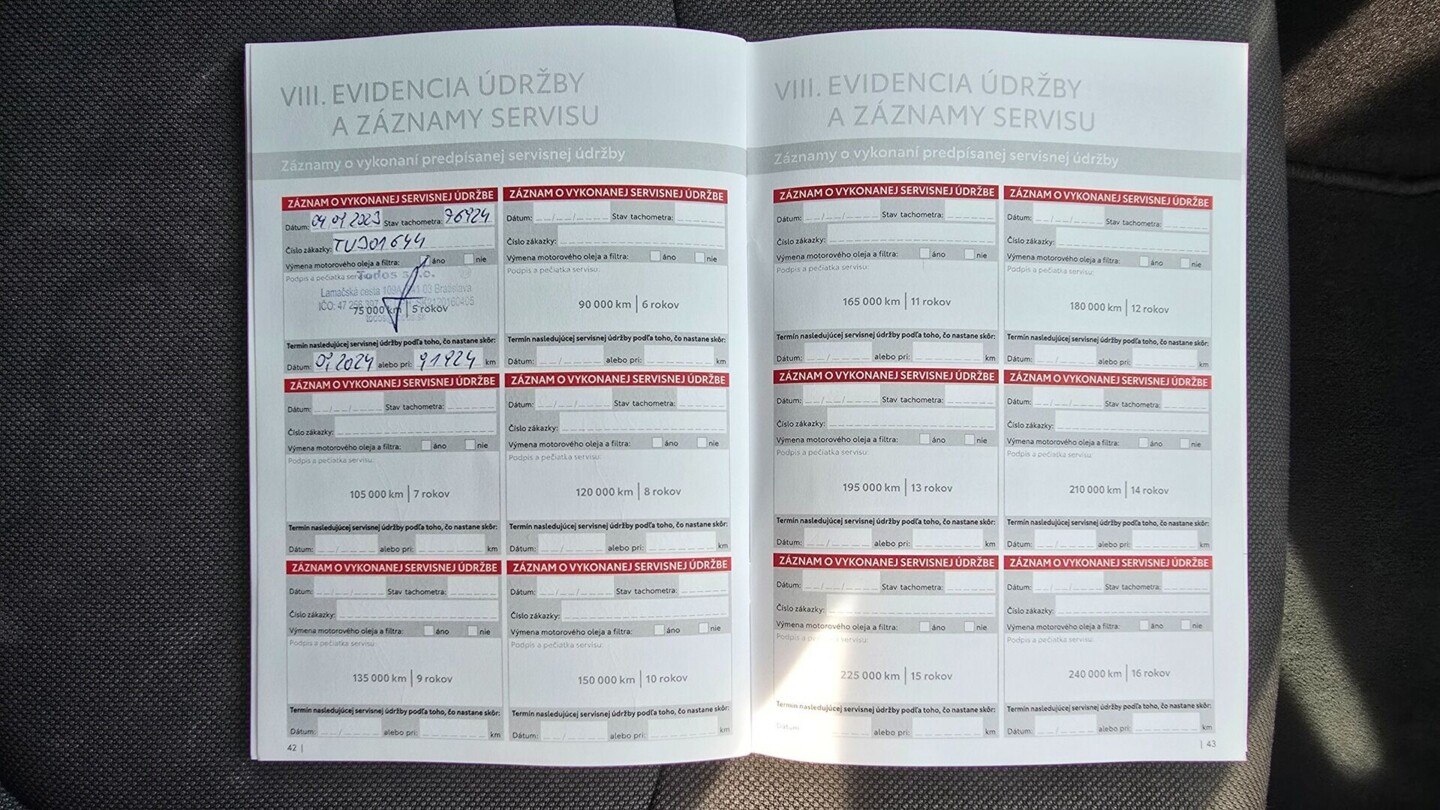 VIII. EVIDENCIA ÚDRŽBY
A ZÁZNAMY SERVISU
Záznamy o vykonaní predpísanej servisnej údržby
ZÁZNAM O VYKONANEJ SERVISNEJ ÚDRŽBE
Dátum: 04 01 2023 Stav tachometra: 76924
Číslo zákazky: TUJ01644
Výmena motorového oleja a filtra: áno nie
Podpis a pečiatka servisu:
Todos s.r.o.
Lamačská cesta 109A, 841 03 Bratislava
75 000 km | 5 rokov
Termín nasledujúcej servisnej údržby podľa toho, čo nastane skôr:
Dátum: 01 2024 alebo pri: 91924 km
ZÁZNAM O VYKONANEJ SERVISNEJ ÚDRŽBE
Dátum: __/__/____ Stav tachometra:
Číslo zákazky:
Výmena motorového oleja a filtra: áno nie
Podpis a pečiatka servisu:
90 000 km | 6 rokov
Termín nasledujúcej servisnej údržby podľa toho, čo nastane skôr:
Dátum: __/____ alebo pri: km
ZÁZNAM O VYKONANEJ SERVISNEJ ÚDRŽBE
Dátum: __/__/____ Stav tachometra:
Číslo zákazky:
Výmena motorového oleja a filtra: áno nie
Podpis a pečiatka servisu:
105 000 km | 7 rokov
Termín nasledujúcej servisnej údržby podľa toho, čo nastane skôr:
Dátum: __/____ alebo pri: km
ZÁZNAM O VYKONANEJ SERVISNEJ ÚDRŽBE
Dátum: __/__/____ Stav tachometra:
Číslo zákazky:
Výmena motorového oleja a filtra: áno nie
Podpis a pečiatka servisu:
120 000 km | 8 rokov
Termín nasledujúcej servisnej údržby podľa toho, čo nastane skôr:
Dátum: __/____ alebo pri: km
ZÁZNAM O VYKONANEJ SERVISNEJ ÚDRŽBE
Dátum: __/__/____ Stav tachometra:
Číslo zákazky:
Výmena motorového oleja a filtra: áno nie
Podpis a pečiatka servisu:
135 000 km | 9 rokov
Termín nasledujúcej servisnej údržby podľa toho, čo nastane skôr:
Dátum: __/____ alebo pri: km
ZÁZNAM O VYKONANEJ SERVISNEJ ÚDRŽBE
Dátum: __/__/____ Stav tachometra:
Číslo zákazky:
Výmena motorového oleja a filtra: áno nie
Podpis a pečiatka servisu:
150 000 km | 10 rokov
Termín nasledujúcej servisnej údržby podľa toho, čo nastane skôr:
Dátum: __/____ alebo pri: km
42 |
VIII. EVIDENCIA ÚDRŽBY
A ZÁZNAMY SERVISU
Záznamy o vykonaní predpísanej servisnej údržby
ZÁZNAM O VYKONANEJ SERVISNEJ ÚDRŽBE
Dátum: __/__/____ Stav tachometra:
Číslo zákazky:
Výmena motorového oleja a filtra: áno nie
Podpis a pečiatka servisu:
165 000 km | 11 rokov
Termín nasledujúcej servisnej údržby podľa toho, čo nastane skôr:
Dátum: __/____ alebo pri: km
ZÁZNAM O VYKONANEJ SERVISNEJ ÚDRŽBE
Dátum: __/__/____ Stav tachometra:
Číslo zákazky:
Výmena motorového oleja a filtra: áno nie
Podpis a pečiatka servisu:
180 000 km | 12 rokov
Termín nasledujúcej servisnej údržby podľa toho, čo nastane skôr:
Dátum: __/____ alebo pri: km
ZÁZNAM O VYKONANEJ SERVISNEJ ÚDRŽBE
Dátum: __/__/____ Stav tachometra:
Číslo zákazky:
Výmena motorového oleja a filtra: áno nie
Podpis a pečiatka servisu:
195 000 km | 13 rokov
Termín nasledujúcej servisnej údržby podľa toho, čo nastane skôr:
Dátum: __/____ alebo pri: km
ZÁZNAM O VYKONANEJ SERVISNEJ ÚDRŽBE
Dátum: __/__/____ Stav tachometra:
Číslo zákazky:
Výmena motorového oleja a filtra: áno nie
Podpis a pečiatka servisu:
210 000 km | 14 rokov
Termín nasledujúcej servisnej údržby podľa toho, čo nastane skôr:
Dátum: __/____ alebo pri: km
ZÁZNAM O VYKONANEJ SERVISNEJ ÚDRŽBE
Dátum: __/__/____ Stav tachometra:
Číslo zákazky:
Výmena motorového oleja a filtra: áno nie
Podpis a pečiatka servisu:
225 000 km | 15 rokov
Termín nasledujúcej servisnej údržby podľa toho, čo nastane skôr:
Dátum: alebo pri: km
ZÁZNAM O VYKONANEJ SERVISNEJ ÚDRŽBE
Dátum: __/__/____ Stav tachometra:
Číslo zákazky:
Výmena motorového oleja a filtra: áno nie
Podpis a pečiatka servisu:
240 000 km | 16 rokov
Termín nasledujúcej servisnej údržby podľa toho, čo nastane skôr:
Dátum: __/____ alebo pri: km
| 43